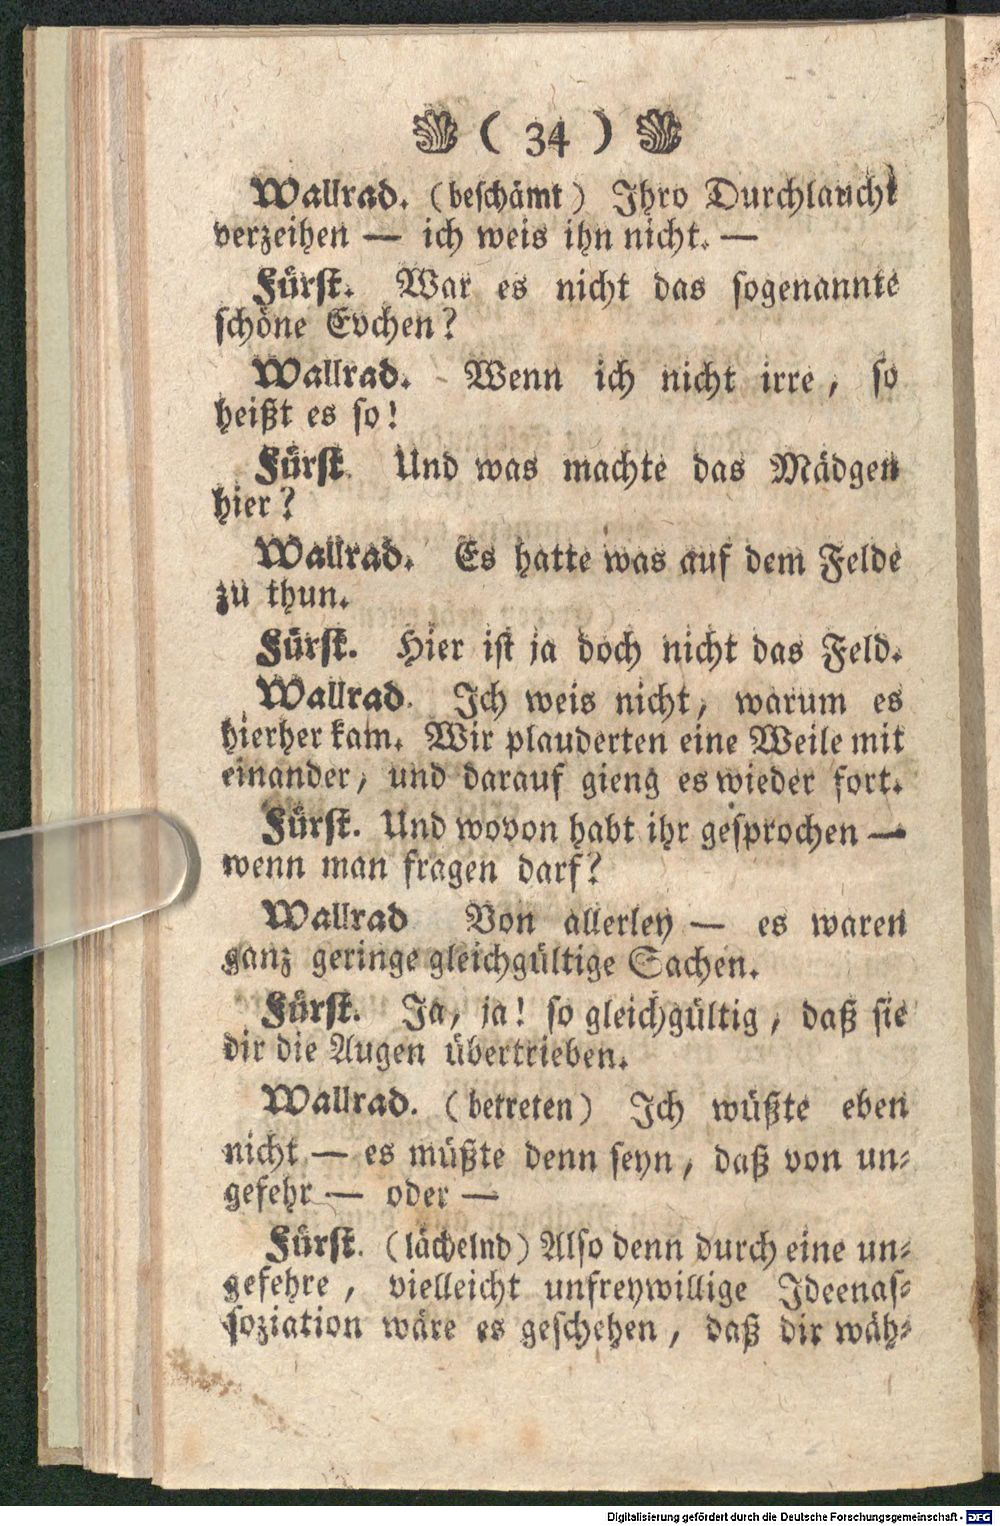 ( 34 )
Wallrad. (beschämt) Ihro Durchlaucht
verzeihen — ich weis ihn nicht. —
Fürst. War es nicht das sogenannte
schöne Evchen?
Wallrad. Wenn ich nicht irre, so
heißt es so!
Fürst. Und was machte das Mädgen
hier?
Wallrad. Es hatte was auf dem Felde
zu thun.
Fürst. Hier ist ja doch nicht das Feld.
Wallrad. Ich weis nicht, warum es
hierher kam. Wir plauderten eine Weile mit
einander, und darauf gieng es wieder fort.
Fürst. Und wovon habt ihr gesprochen —
wenn man fragen darf?
Wallrad Von allerley — es waren
ganz geringe gleichgültige Sachen.
Fürst. Ja, ja! so gleichgültig, daß sie
dir die Augen übertrieben.
Wallrad. (betreten) Ich wüßte eben
nicht — es müßte denn seyn, daß von un-
gefehr — oder —
Fürst. (lächelnd) Also denn durch eine un-
gefehre, vielleicht unfreywillige Ideenas-
soziation wäre es geschehen, daß dir wäh-
Digitalisierung gefördert durch die Deutsche Forschungsgemeinschaft - DFG